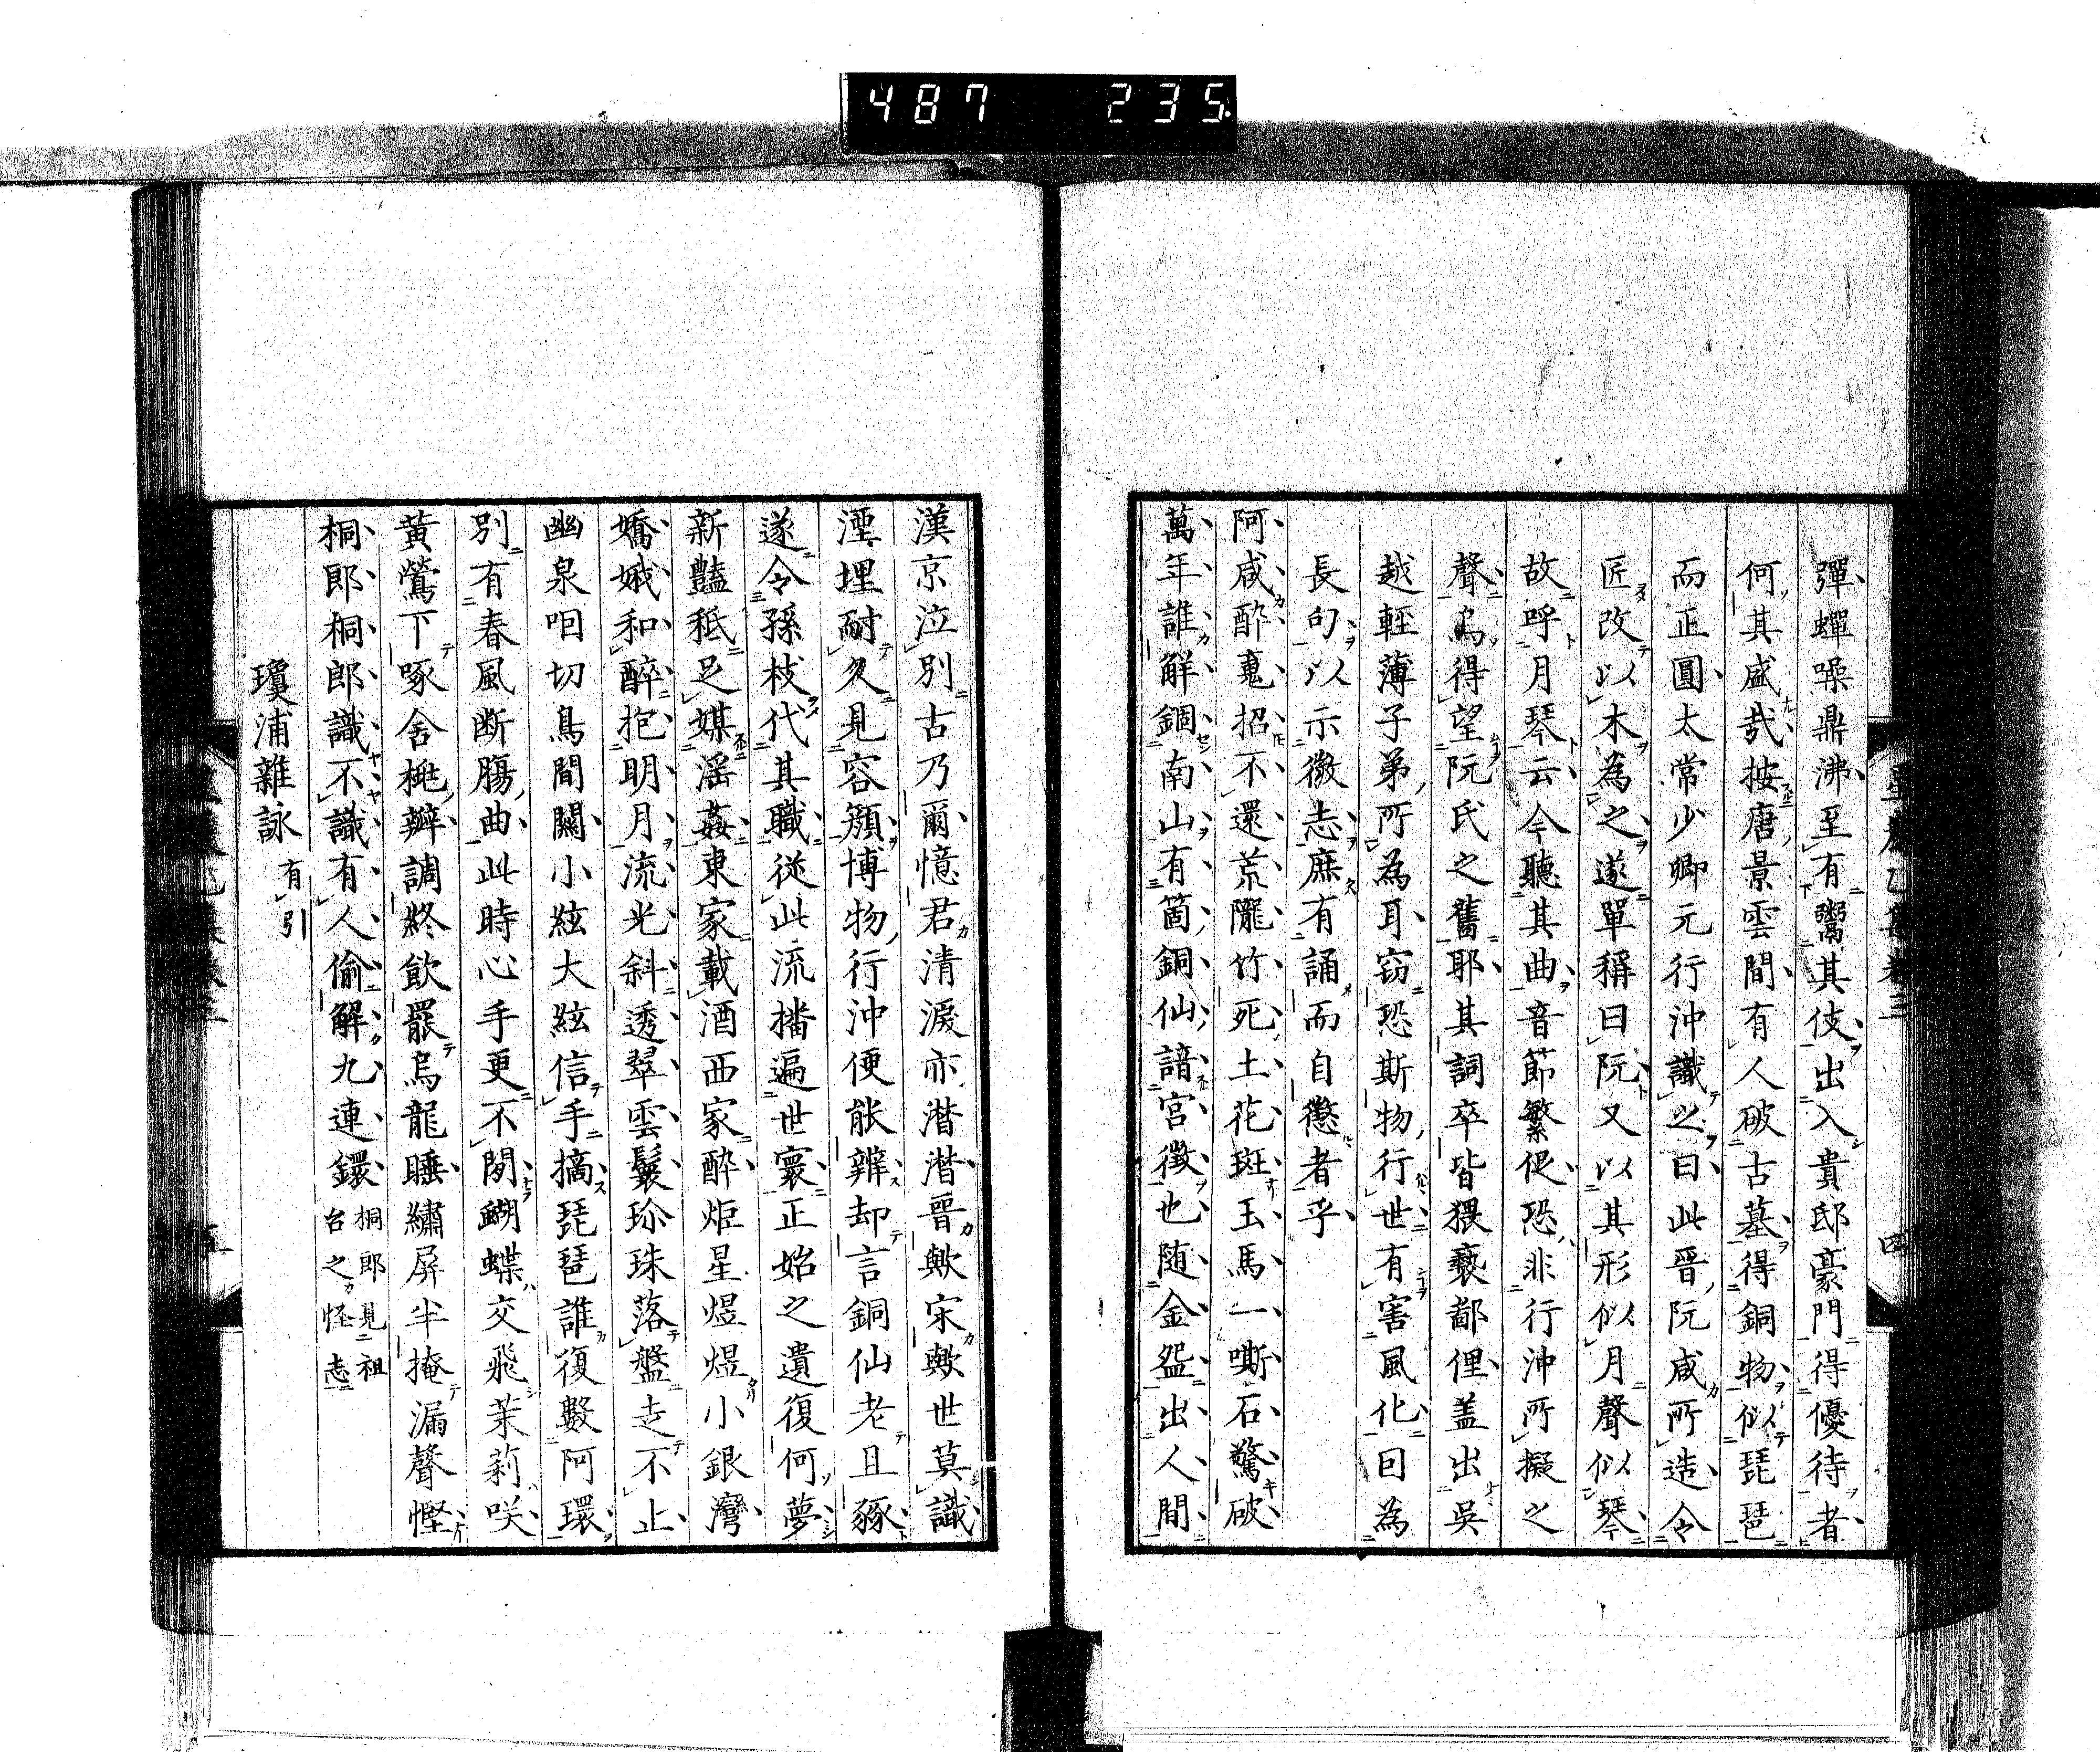 487 235
彈蟬噪鼎沸至有鬻其伎出入貴邸豪門得優待者
何其盛哉按唐景雲間有人破古墓得銅物似琵琶
而正圓太常少卿元行沖識之曰此晉阮咸所造令
匠改以木為之遂單稱曰阮又以其形似月聲似琴
故呼月琴云今聽其曲音節繁促恐非行沖所擬之
聲烏得望阮氏之舊耶其詞卒皆猥褻鄙俚盖出吳
越輕薄子弟所為耳窃恐斯物行世有害風化因為
長句以示微志庶有誦而自懲者乎
阿咸酔䰟招不還荒隴竹死土花斑玉馬一嘶石驚破
萬年誰解錮南山有箇銅仙諳宮徵也随金盌出人間
漢京泣別古乃爾憶君清淚亦潜潜晉歟宋歟世莫識
湮埋耐久見容顏博物行沖便能辨却言銅仙老且豩
遂令孫枝代其職從此流播遍世寰正始之遺復何夢
新豔秪足媒滛姦東家載酒西家酔炬星煜煜小銀灣
嬌娥和醉抱明月流光斜透翠雲鬟珍珠落盤走不止
幽泉咽切鳥間關小絃大絃信手摘琵琶誰復數阿環
別有春風断膓曲此時心手更不閑蝴蝶交飛茉莉咲
黃鶯下啄含桃辬調終飲罷烏龍睡繡屏半掩漏聲慳
桐郎桐郎識不識有人偷解九連鐶 桐郎見祖台之怪志
瓊浦雜詠 有引